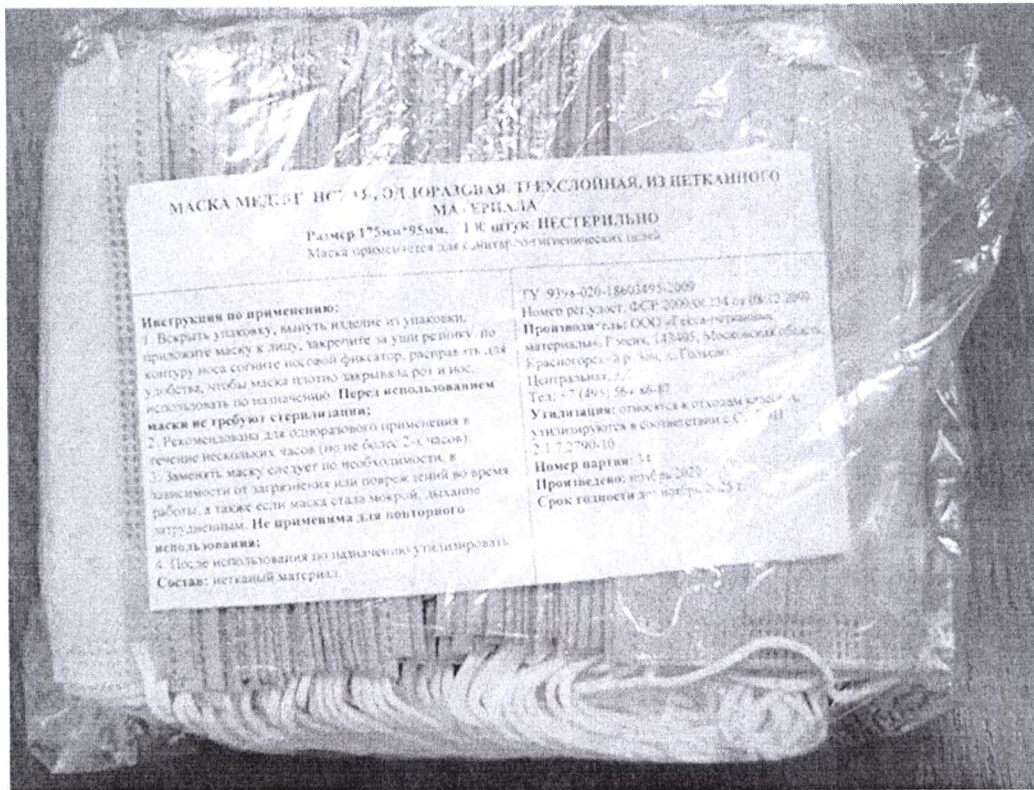 МАСКА ОДНОРАЗОВАЯ, ТРЕХСЛОЙНАЯ, ИЗ НЕТКАННОГО
МАТЕРИАЛА
Размер 1*5мм*95мм. штук НЕСТЕРИЛЬНО
Маска применяется для санитарно-гигиенических целей
Инструкция по применению:
1. Вскрыть упаковку, вынуть изделие из упаковки,
приложите маску к лицу, закрепите за уши резинку, по
контуру носа согните носовой фиксатор, расправить для
удобства, чтобы маска плотно закрывала рот и нос,
использовать по назначению. Перед использованием
маски не требуют стерилизации;
2. Рекомендована для одноразового применения в
течение нескольких часов (но не более 2-х часов);
3. Заменять маску следует по необходимости, в
зависимости от загрязнения или повреждений во время
работы, а также если маска стала мокрой, дыхание
затрудненным. Не применима для повторного
использования;
4. После использования по назначению утилизировать
Состав: нетканый материал
ТУ 9398-020-18603495-2009
Номер рег.удост. ФСР 2009/ от 08.12.2009
Производитель: ООО «Гекса-нетканые
материалы», Россия, 143405, Московская область,
Красногорский
Центральная,
Тел: +7 (495)
Утилизация: относятся к отходам класса
утилизируются в соответствии с
2.1.7.2790-10
Номер партии: 34
Произведено: ноябрь 2020
Срок годности до: ноябрь